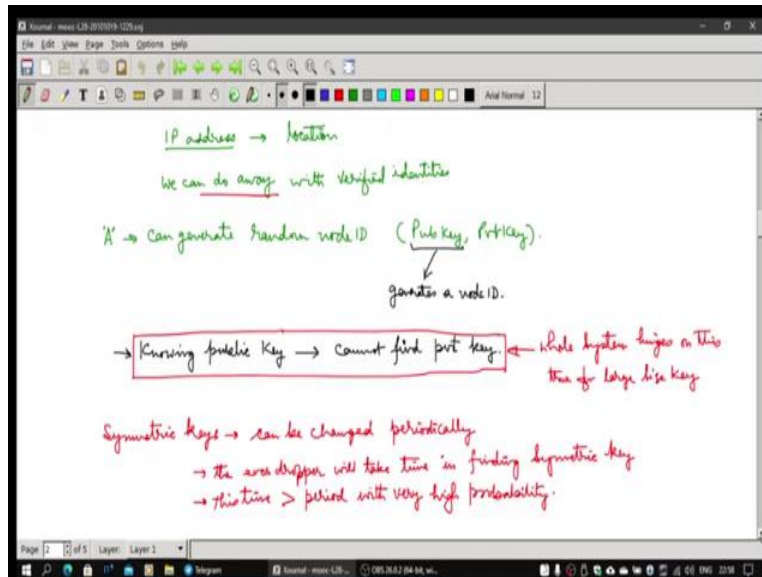 Xournal - mooc-L28-20101019-1229.xoj
File Edit View Page Tools Options Help
Arial Normal 12
IP address → location
We can do away with verified identities
'A' → can generate random node ID (Pub Key, Prt Key).
generates a node ID.
→ Knowing public Key → cannot find pvt key. ← whole system hinges on this
true for large size key
Symmetric keys → can be changed periodically
→ the eves dropper will take time in finding symmetric key
→ this time > period with very high probability.
Page 2 of 5 Layer: Layer 1
Telegram Xournal - mooc-L28-... OBS 26.0.2 (64-bit, wi... ENG 22:58